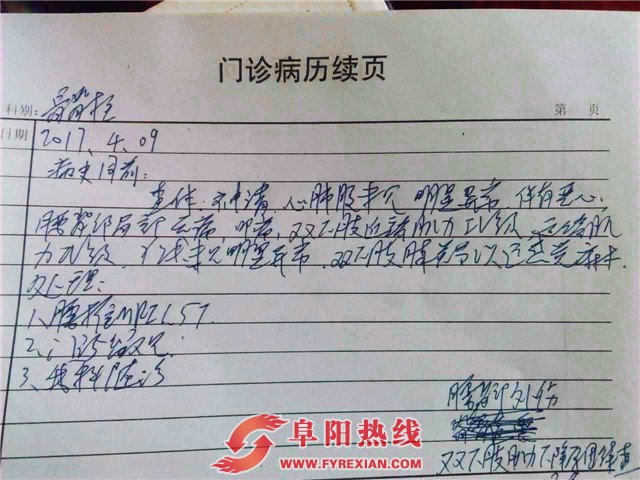 门诊病历续页
科别: 骨脊柱 第 页
日期 2017、4、09
病史同前:
查体: 神清 心肺腹未见明显异常,伴有恶心,
腰背部局部压痛 叩痛,双下肢近端肌力IV级,远端肌
力IV级, 未见明显异常,双下肢膝关节以远感觉麻木
处理:
1、腰椎MRI
2、门诊
3、我科随诊
腰背部外伤
双下肢肌力下降原因待查
阜阳热线
WWW.FYREXIAN.COM